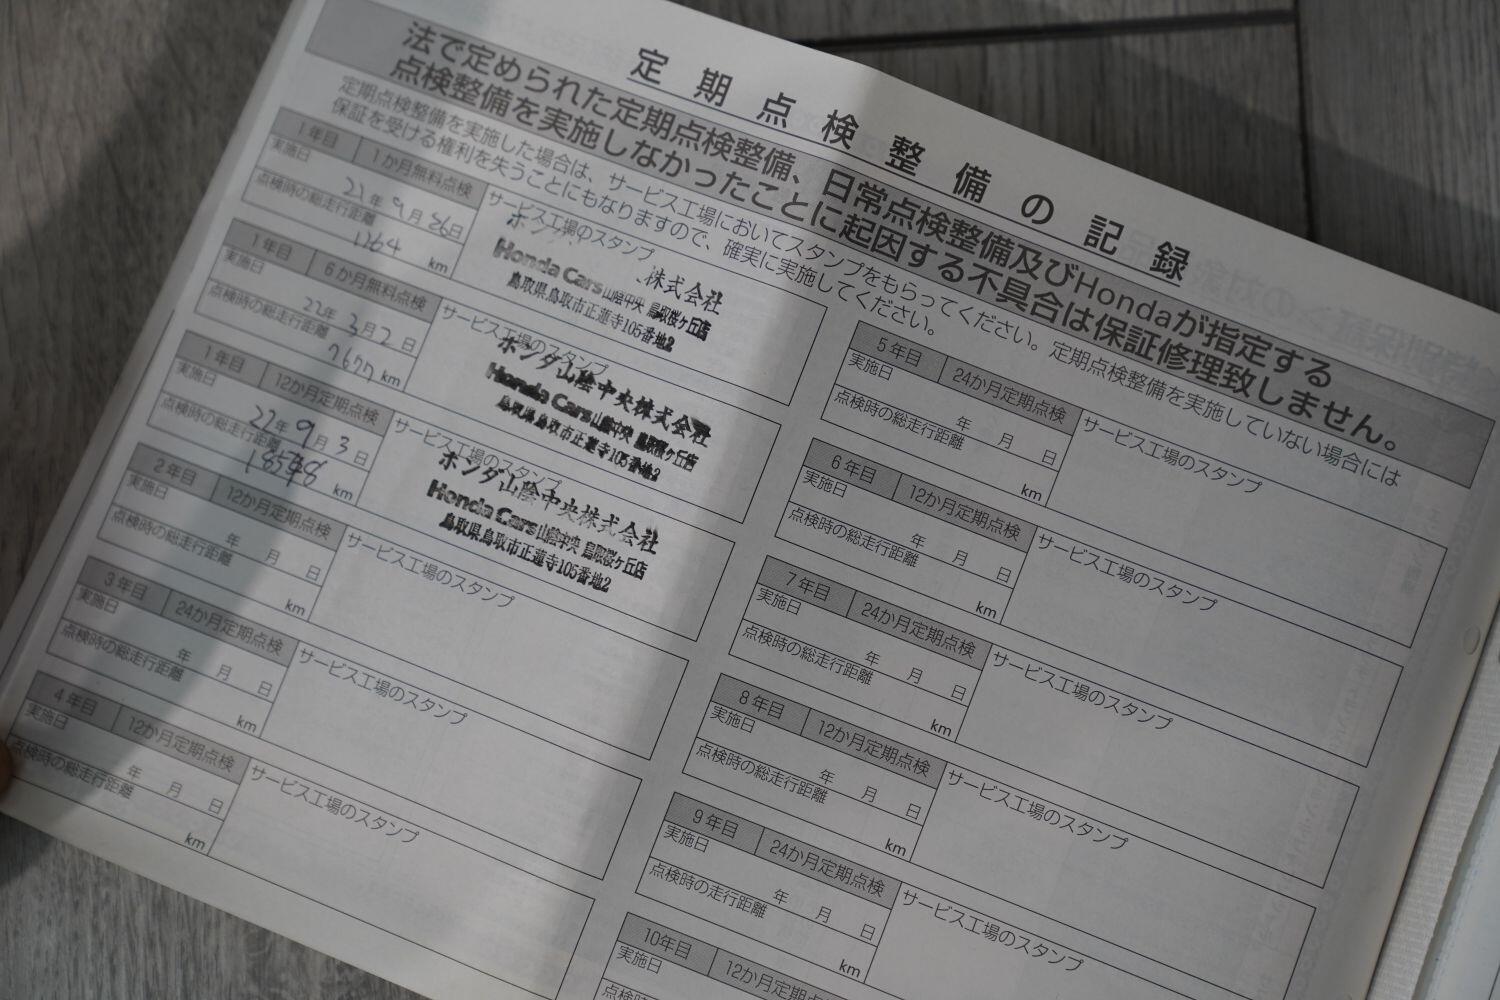 定期点検整備の記録
法で定められた定期点検整備、日常点検整備及びHondaが指定する
点検整備を実施しなかったことに起因する不具合は保証修理致しません。
定期点検整備を実施した場合は、サービス工場においてスタンプをもらってください。定期点検整備を実施していない場合には
保証を受ける権利を失うことにもなりますので、確実に実施してください。
1年目 1か月無料点検
実施日 21年9月26日
点検時の総走行距離
1264 km
サービス工場のスタンプ
株式会社
Honda Cars 山陰中央 鳥取桜ケ丘店
鳥取県鳥取市正蓮寺105番地2
1年目 6か月無料点検
実施日 22年3月2日
点検時の総走行距離
km
サービス工場のスタンプ
ホンダ山陰中央株式会社
Honda Cars 山陰中央 鳥取桜ケ丘店
鳥取県鳥取市正蓮寺105番地2
1年目 12か月定期点検
実施日 22年9月3日
点検時の総走行距離
km
サービス工場のスタンプ
ホンダ山陰中央株式会社
Honda Cars 山陰中央 鳥取桜ケ丘店
鳥取県鳥取市正蓮寺105番地2
2年目 12か月定期点検
実施日 年 月 日
点検時の総走行距離
km
サービス工場のスタンプ
3年目 24か月定期点検
実施日 年 月 日
点検時の総走行距離
km
サービス工場のスタンプ
4年目 12か月定期点検
実施日 年 月 日
点検時の総走行距離
km
サービス工場のスタンプ
5年目 24か月定期点検
実施日 年 月 日
点検時の総走行距離
km
サービス工場のスタンプ
6年目 12か月定期点検
実施日 年 月 日
点検時の総走行距離
km
サービス工場のスタンプ
7年目 24か月定期点検
実施日 年 月 日
点検時の総走行距離
km
サービス工場のスタンプ
8年目 12か月定期点検
実施日 年 月 日
点検時の総走行距離
km
サービス工場のスタンプ
9年目 24か月定期点検
実施日 年 月 日
点検時の走行距離
km
サービス工場のスタンプ
10年目 12か月定期点検
実施日
点検時の総走行距離